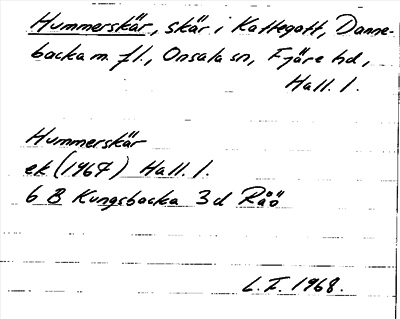 Hummerskär, skär i Kattegatt, Danne-
backa m. fl., Onsala sn, Fjäre hd,
Hall. l.
Hummerskär
ek (1967) Hall. l.
6 B Kungsbacka 3d Råö
L.I. 1968.